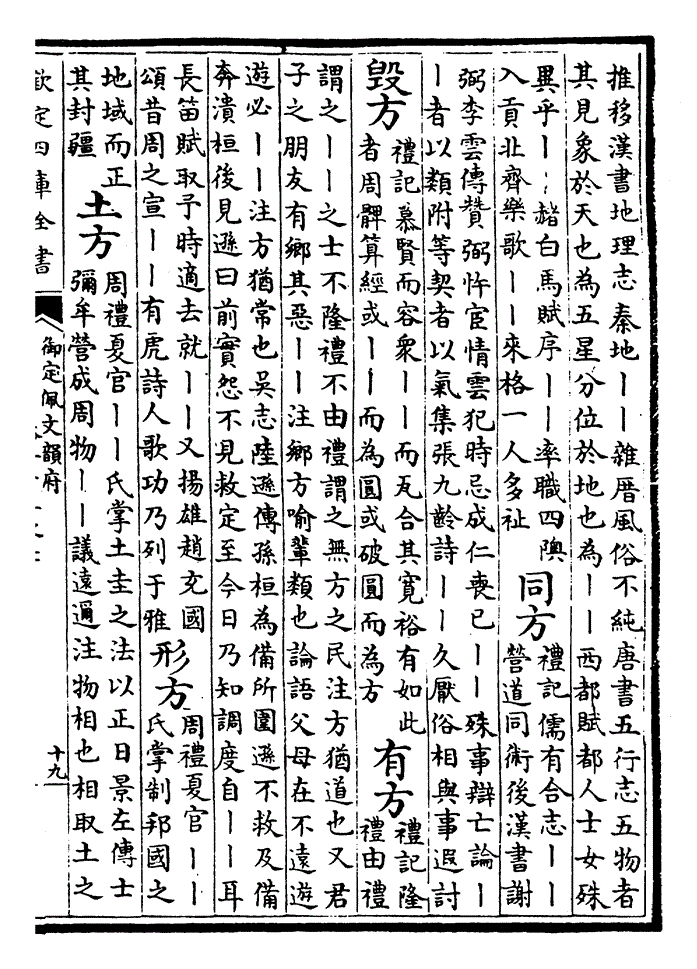 推移漢書地理志秦地丨丨雜厝風俗不純唐書五行志五物者
其見象於天也為五星分位於地也為丨丨西都賦都人士女殊
異乎丨丨赭白馬賦序丨丨率職四隩
入貢北齊樂歌丨丨來格一人多祉
同方
禮記儒有合志丨丨
營道同術後漢書謝
弼李雲傳贊弼忤宦情雲犯時忌成仁喪已丨丨殊事辯亡論丨
丨者以類附等契者以氣集張九齡詩丨丨久厭俗相與事遐討
毀方
禮記慕賢而容衆丨丨而瓦合其寛裕有如此
者周髀算經或丨丨而為圓或破圓而為方
有方
禮記隆
禮由禮
謂之丨丨之士不隆禮不由禮謂之無方之民注方猶道也又君
子之朋友有鄉其惡丨丨注鄉方喻輩類也論語父母在不遠遊
遊必丨丨注方猶常也吳志陸遜傳孫桓為備所圍遜不救及備
奔潰桓後見遜曰前實怨不見救定至今日乃知調度自丨丨耳
長笛賦取予時適去就丨丨又揚雄趙充國
頌昔周之宣丨丨有虎詩人歌功乃列于雅
形方
周禮夏官丨丨
氏掌制邦國之
地域而正
其封疆
土方
周禮夏官丨丨氏掌土圭之法以正日景左傳士
彌牟營成周物丨丨議遠邇注物相也相取土之
欽定四庫全書
御定佩文韻府
十九